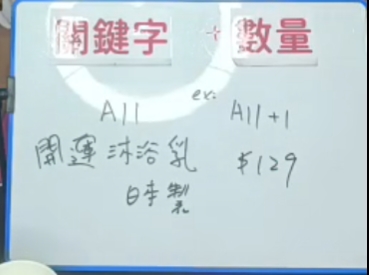 關鍵字+數量
ex:
A11 A11+1
開運沐浴乳 $129
日本製